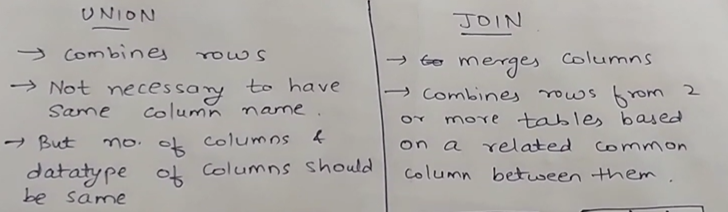 UNION
→ combines rows
→ Not necessary to have
same column name.
→ But no. of columns &
datatype of columns should
be same
JOIN
→ to merges columns
→ combines rows from 2
or more tables based
on a related common
column between them.